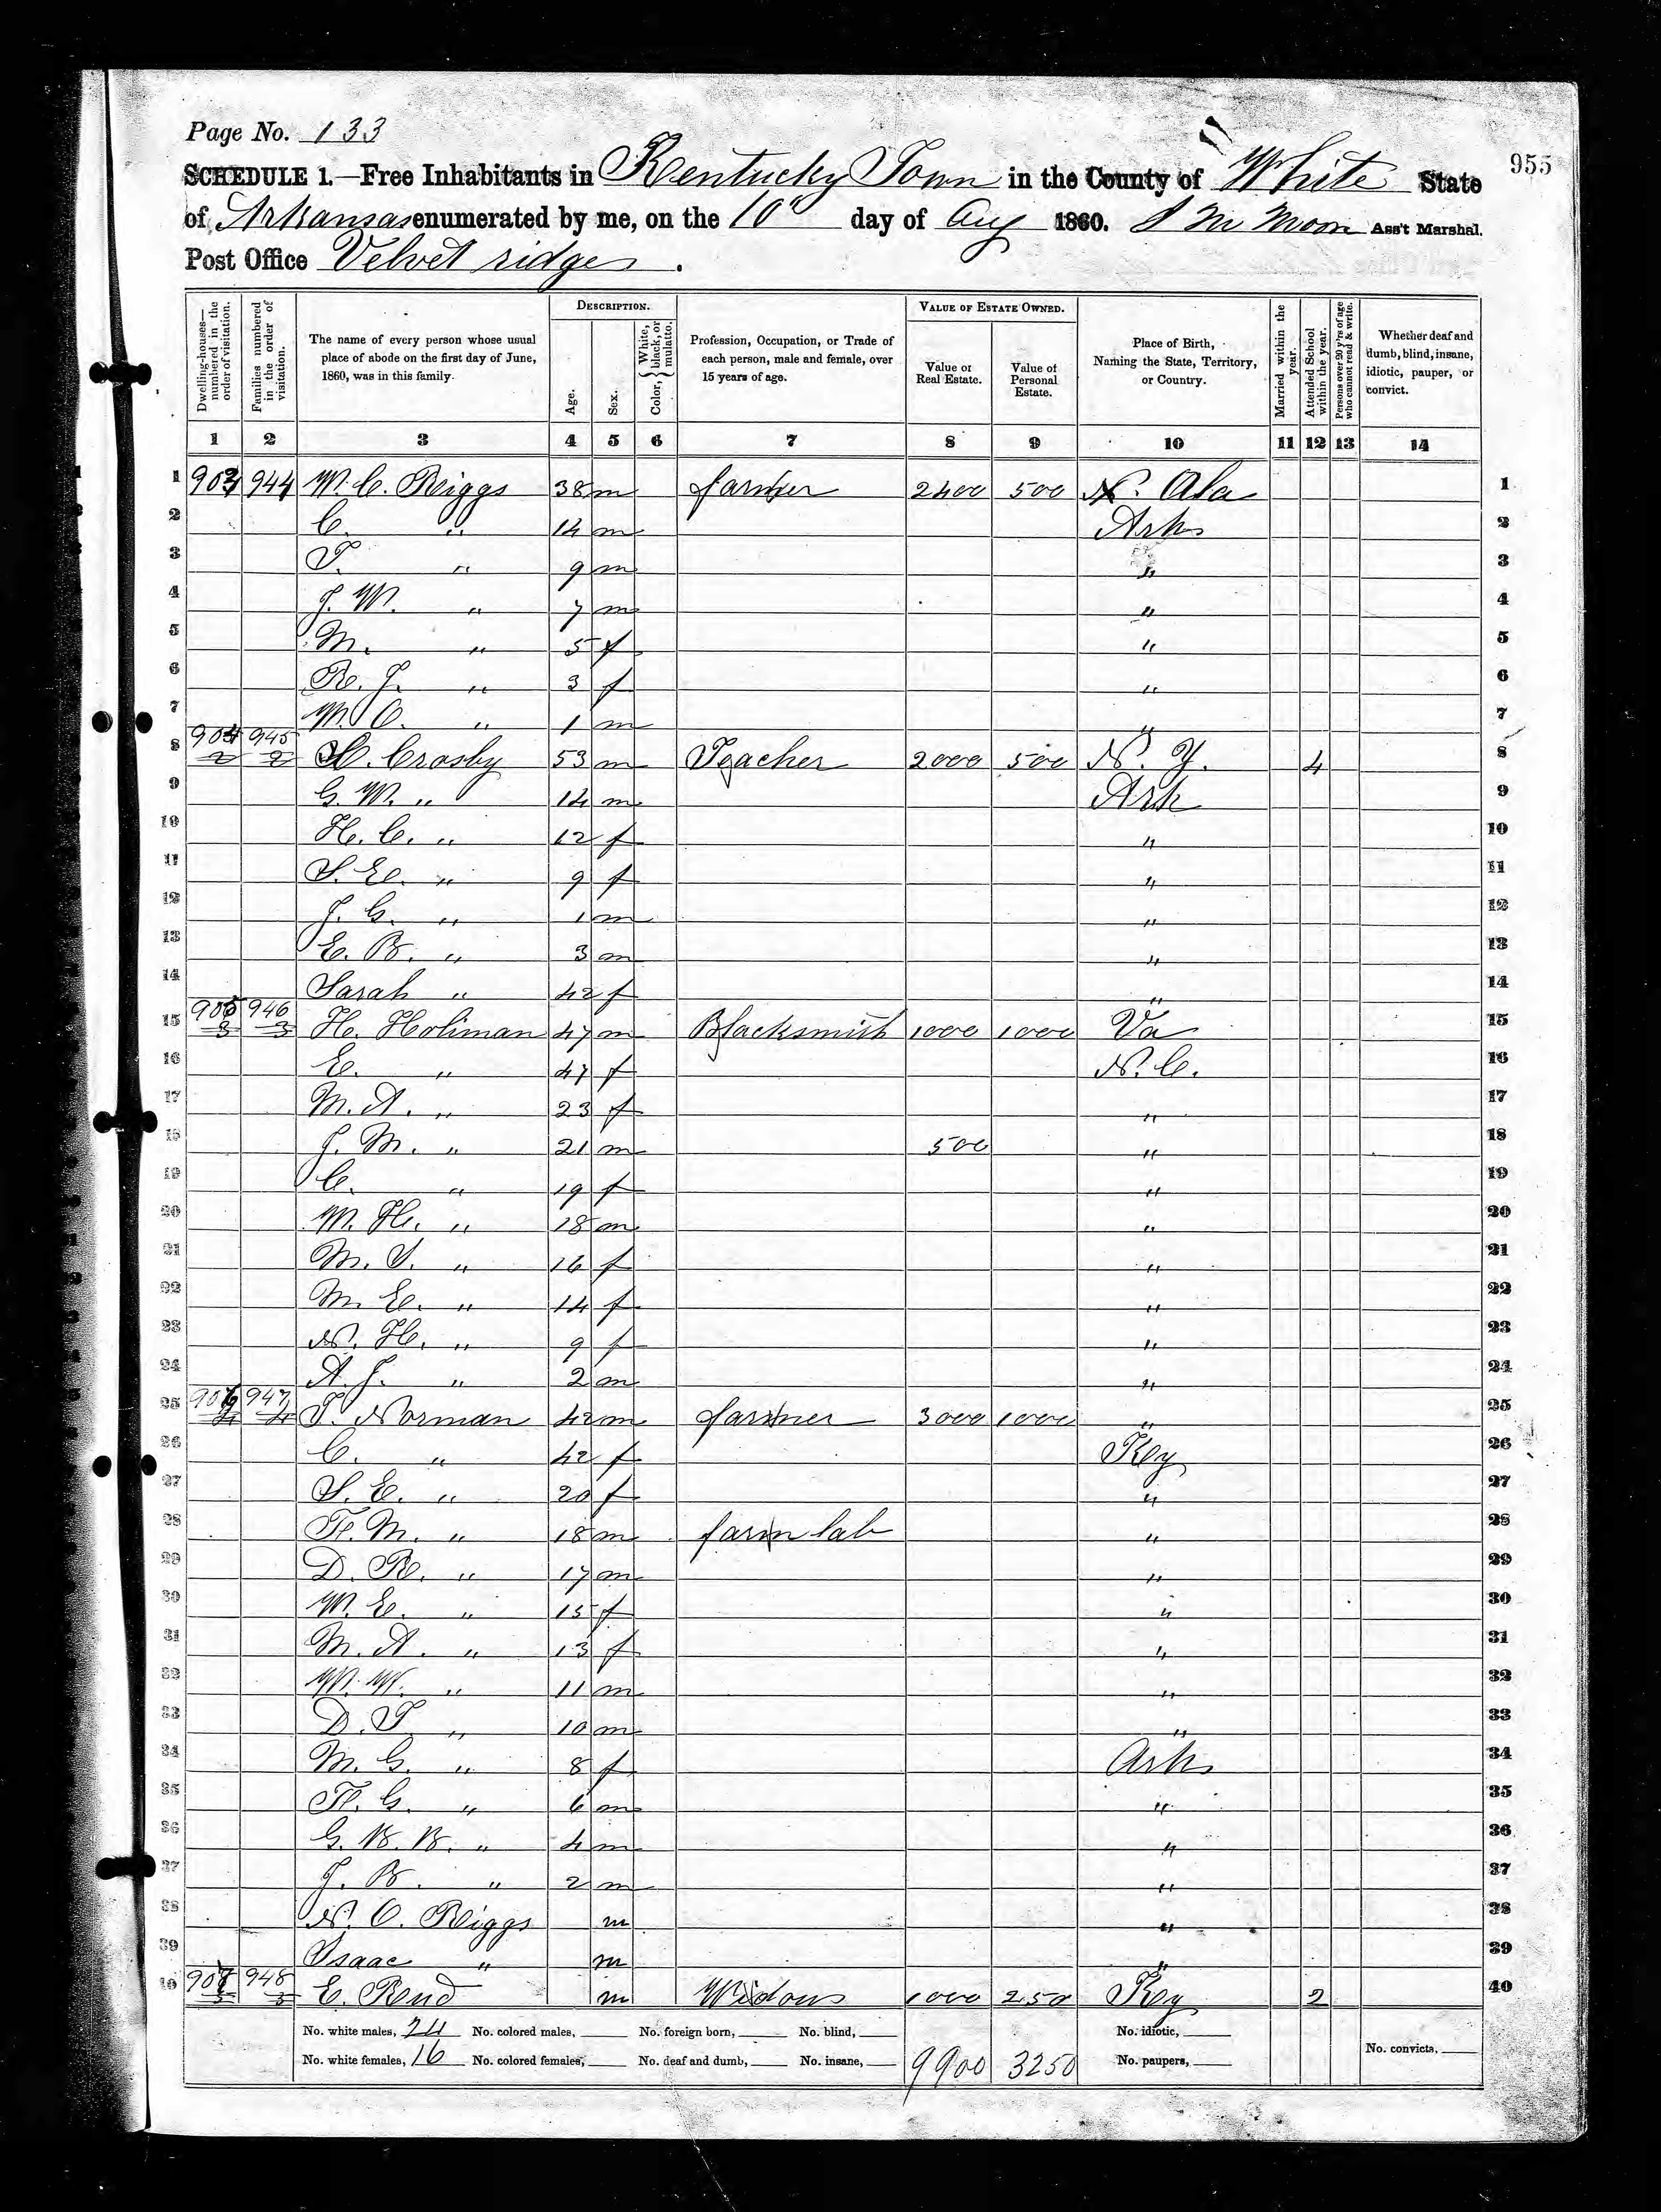 Page No. 133
955
SCHEDULE 1.—Free Inhabitants in Kentucky Town in the County of White State
of Arkansas enumerated by me, on the 10" day of Aug 1860. S M Moon Ass't Marshal.
Post Office Velvet ridge.
Dwelling-houses—numbered in the order of visitation.
Families numbered in the order of visitation.
The name of every person whose usual place of abode on the first day of June, 1860, was in this family.
DESCRIPTION.
Age.
Sex.
Color, { White, black, or mulatto.
Profession, Occupation, or Trade of each person, male and female, over 15 years of age.
VALUE OF ESTATE OWNED.
Value of Real Estate.
Value of Personal Estate.
Place of Birth, Naming the State, Territory, or Country.
Married within the year.
Attended School within the year.
Persons over 20 y'rs of age who cannot read & write.
Whether deaf and dumb, blind, insane, idiotic, pauper, or convict.
1 2 3 4 5 6 7 8 9 10 11 12 13 14
1 903 944 W. C. Riggs 38 m farmer 2400 500 N. Ala 1
2 C. " 14 m Ark 2
3 T. " 9 m " 3
4 J. W. " 7 m " 4
5 M. " 5 f " 5
6 R. J. " 3 f " 6
7 M. O. " 1 m " 7
8 904 945 2 2 H. Crosby 53 m Teacher 2000 500 N. Y. 4 8
9 G. W. " 14 m Ark 9
10 H. C. " 12 f " 10
11 S. E. " 9 f " 11
12 J. G. " 1 m " 12
13 E. B. " 3 m " 13
14 Sarah " 42 f " 14
15 905 946 3 3 H. Holiman 47 m Blacksmith 1000 1000 Va 15
16 E. " 47 f N. C. 16
17 M. A. " 23 f " 17
18 J. M. " 21 m 500 " 18
19 C. " 19 f " 19
20 M. H. " 18 m " 20
21 M. S. " 16 f " 21
22 M. E. " 14 f " 22
23 N. H. " 9 f " 23
24 A. J. " 2 m " 24
25 906 947 4 4 T. Norman 42 m farmer 3000 1000 " 25
26 C. " 42 f Key 26
27 S. E. " 20 f " 27
28 F. M. " 18 m farm lab " 28
29 D. R. " 17 m " 29
30 M. E. " 15 f " 30
31 M. A. " 13 f " 31
32 W. W. " 11 m " 32
33 D. T. " 10 m " 33
34 M. G. " 8 f Ark 34
35 F. G. " 6 m " 35
36 G. B. B. " 4 m " 36
37 J. B. " 2 m " 37
38 N. O. Riggs m " 38
39 Isaac " m " 39
40 907 948 5 5 E. Reno m Widow 1000 250 Key 2 40
No. white males, 24 No. colored males, No. foreign born, No. blind, No. idiotic,
No. white females, 16 No. colored females, No. deaf and dumb, No. insane, 9900 3250 No. paupers, No. convicts,